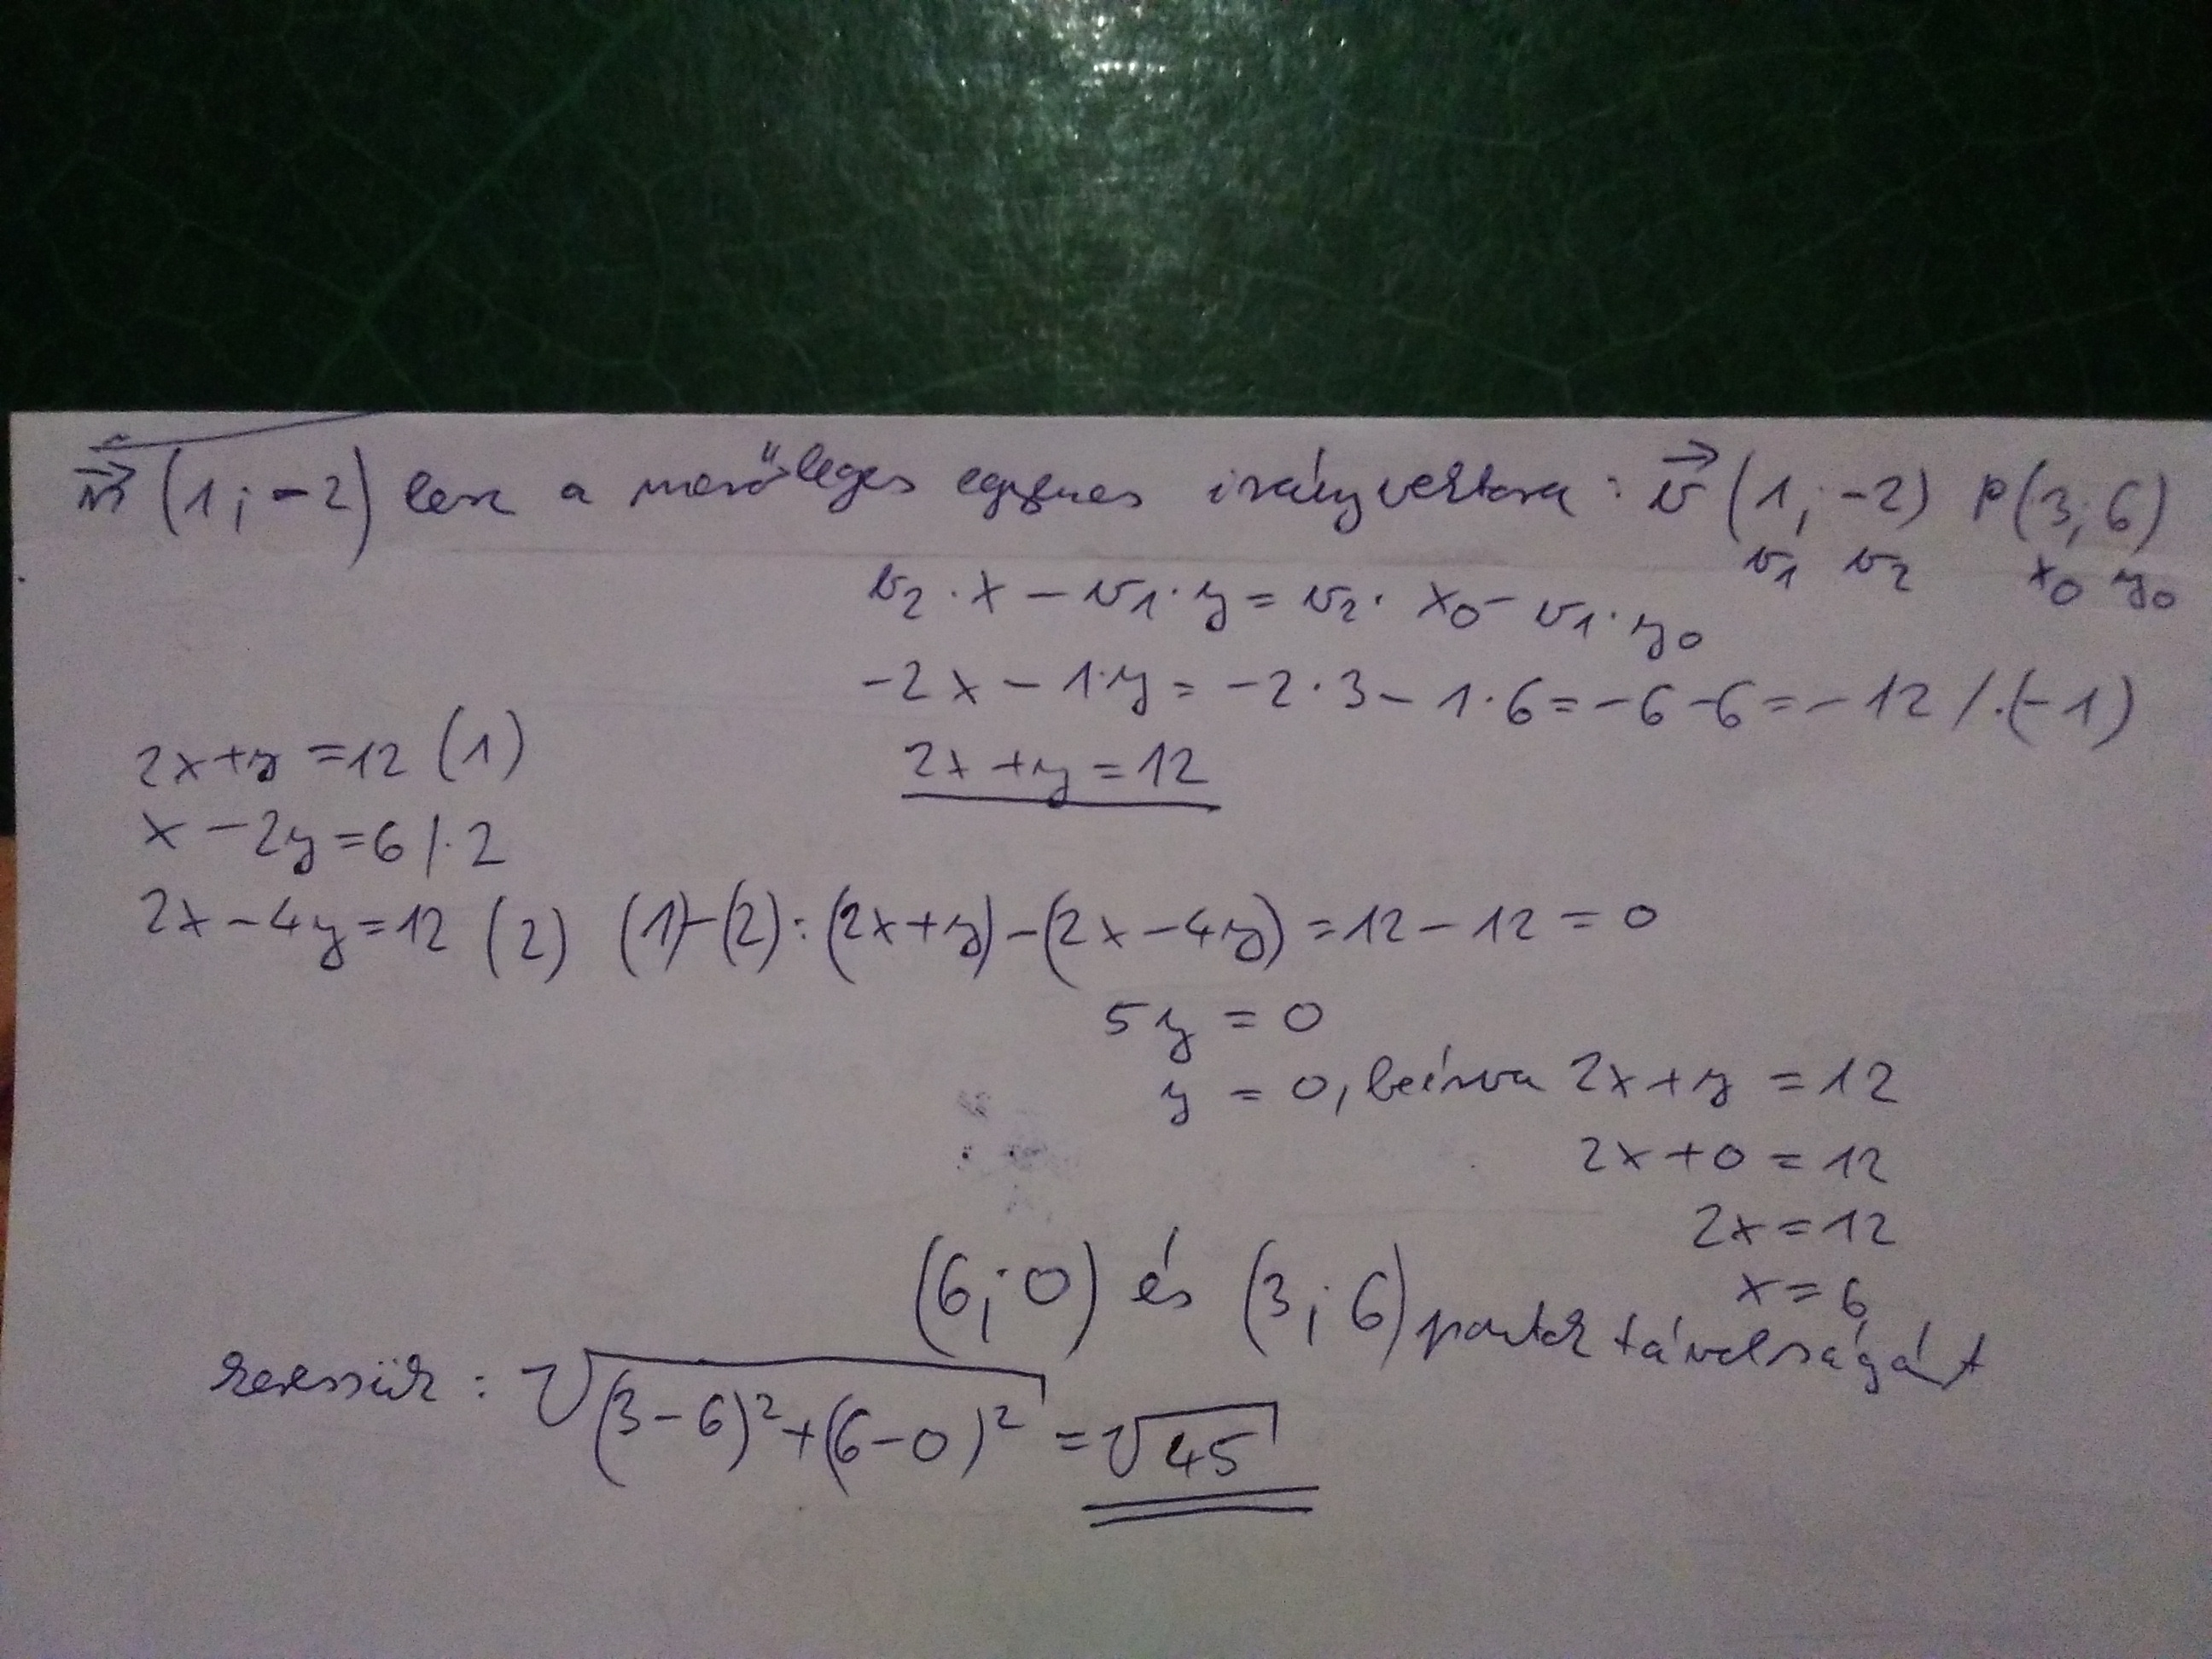 n⃗ (1; -2) lesz a merőleges egyenes irányvektora: v⃗ (1; -2) P(3; 6)
v₁ v₂ x₀ y₀
v₂·x - v₁·y = v₂·x₀ - v₁·y₀
-2x - 1·y = -2·3 - 1·6 = -6-6 = -12 /·(-1)
2x+y = 12
2x+y = 12 (1)
x - 2y = 6 /·2
2x - 4y = 12 (2) (1)-(2): (2x+y) - (2x-4y) = 12 - 12 = 0
5y = 0
y = 0, beírva 2x+y = 12
2x+0 = 12
2x = 12
x = 6
(6; 0) és (3; 6) pontok távolságát
keressük: √(3-6)²+(6-0)² = √45